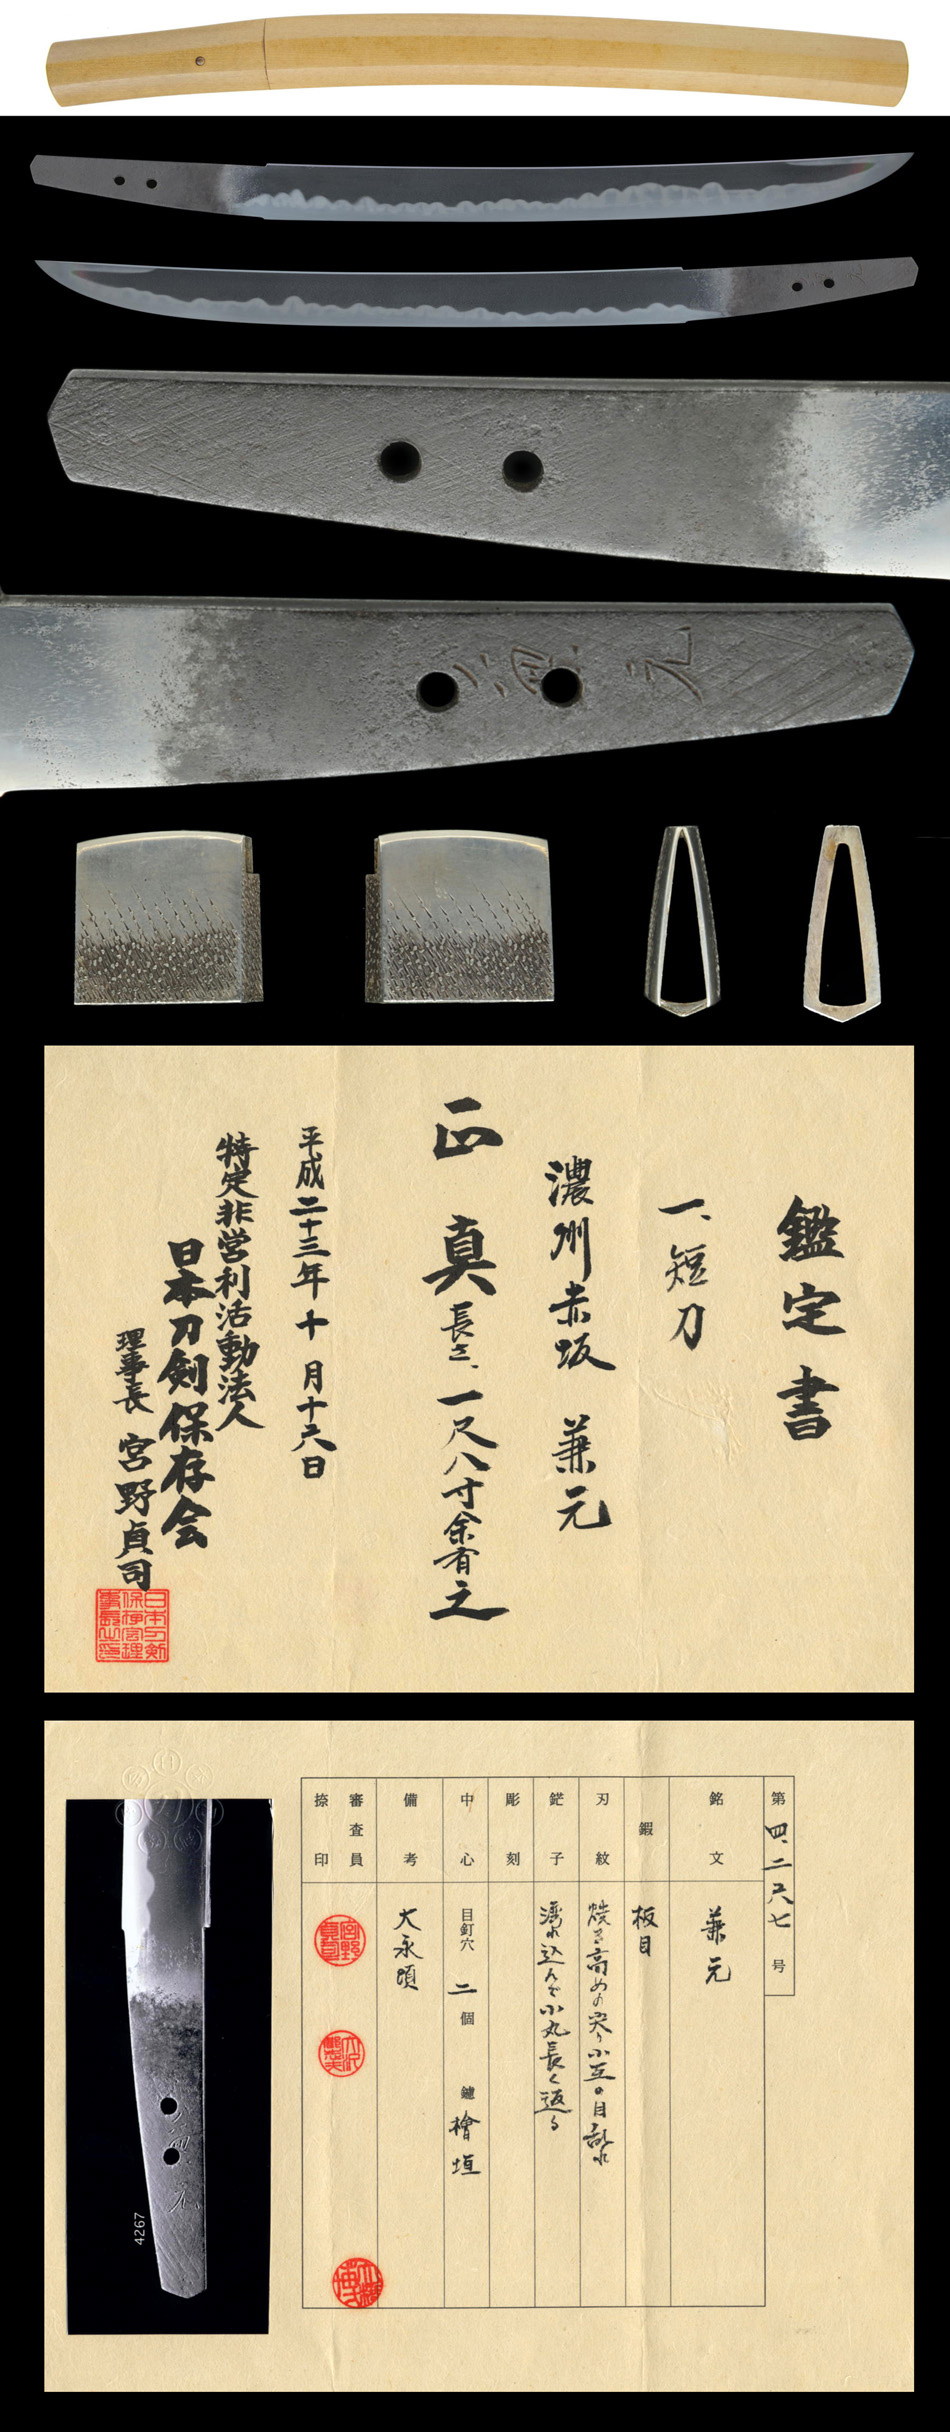 兼元
鑑定書
一、短刀
濃州赤坂 兼元
正真 長さ、一尺八寸余有之
平成二十三年十月十六日
特定非営利活動法人
日本刀剣保存会
理事長 宮野貞司
第四、二六七号
銘文 兼元
鍜 板目
刃紋 焼き高めの尖り小互の目乱れ
鋩子 湾れ込んで小丸長く返る
彫刻
中心 目釘穴 二個 鑢 檜垣
備考 大永頃
審査員
捺印
4267